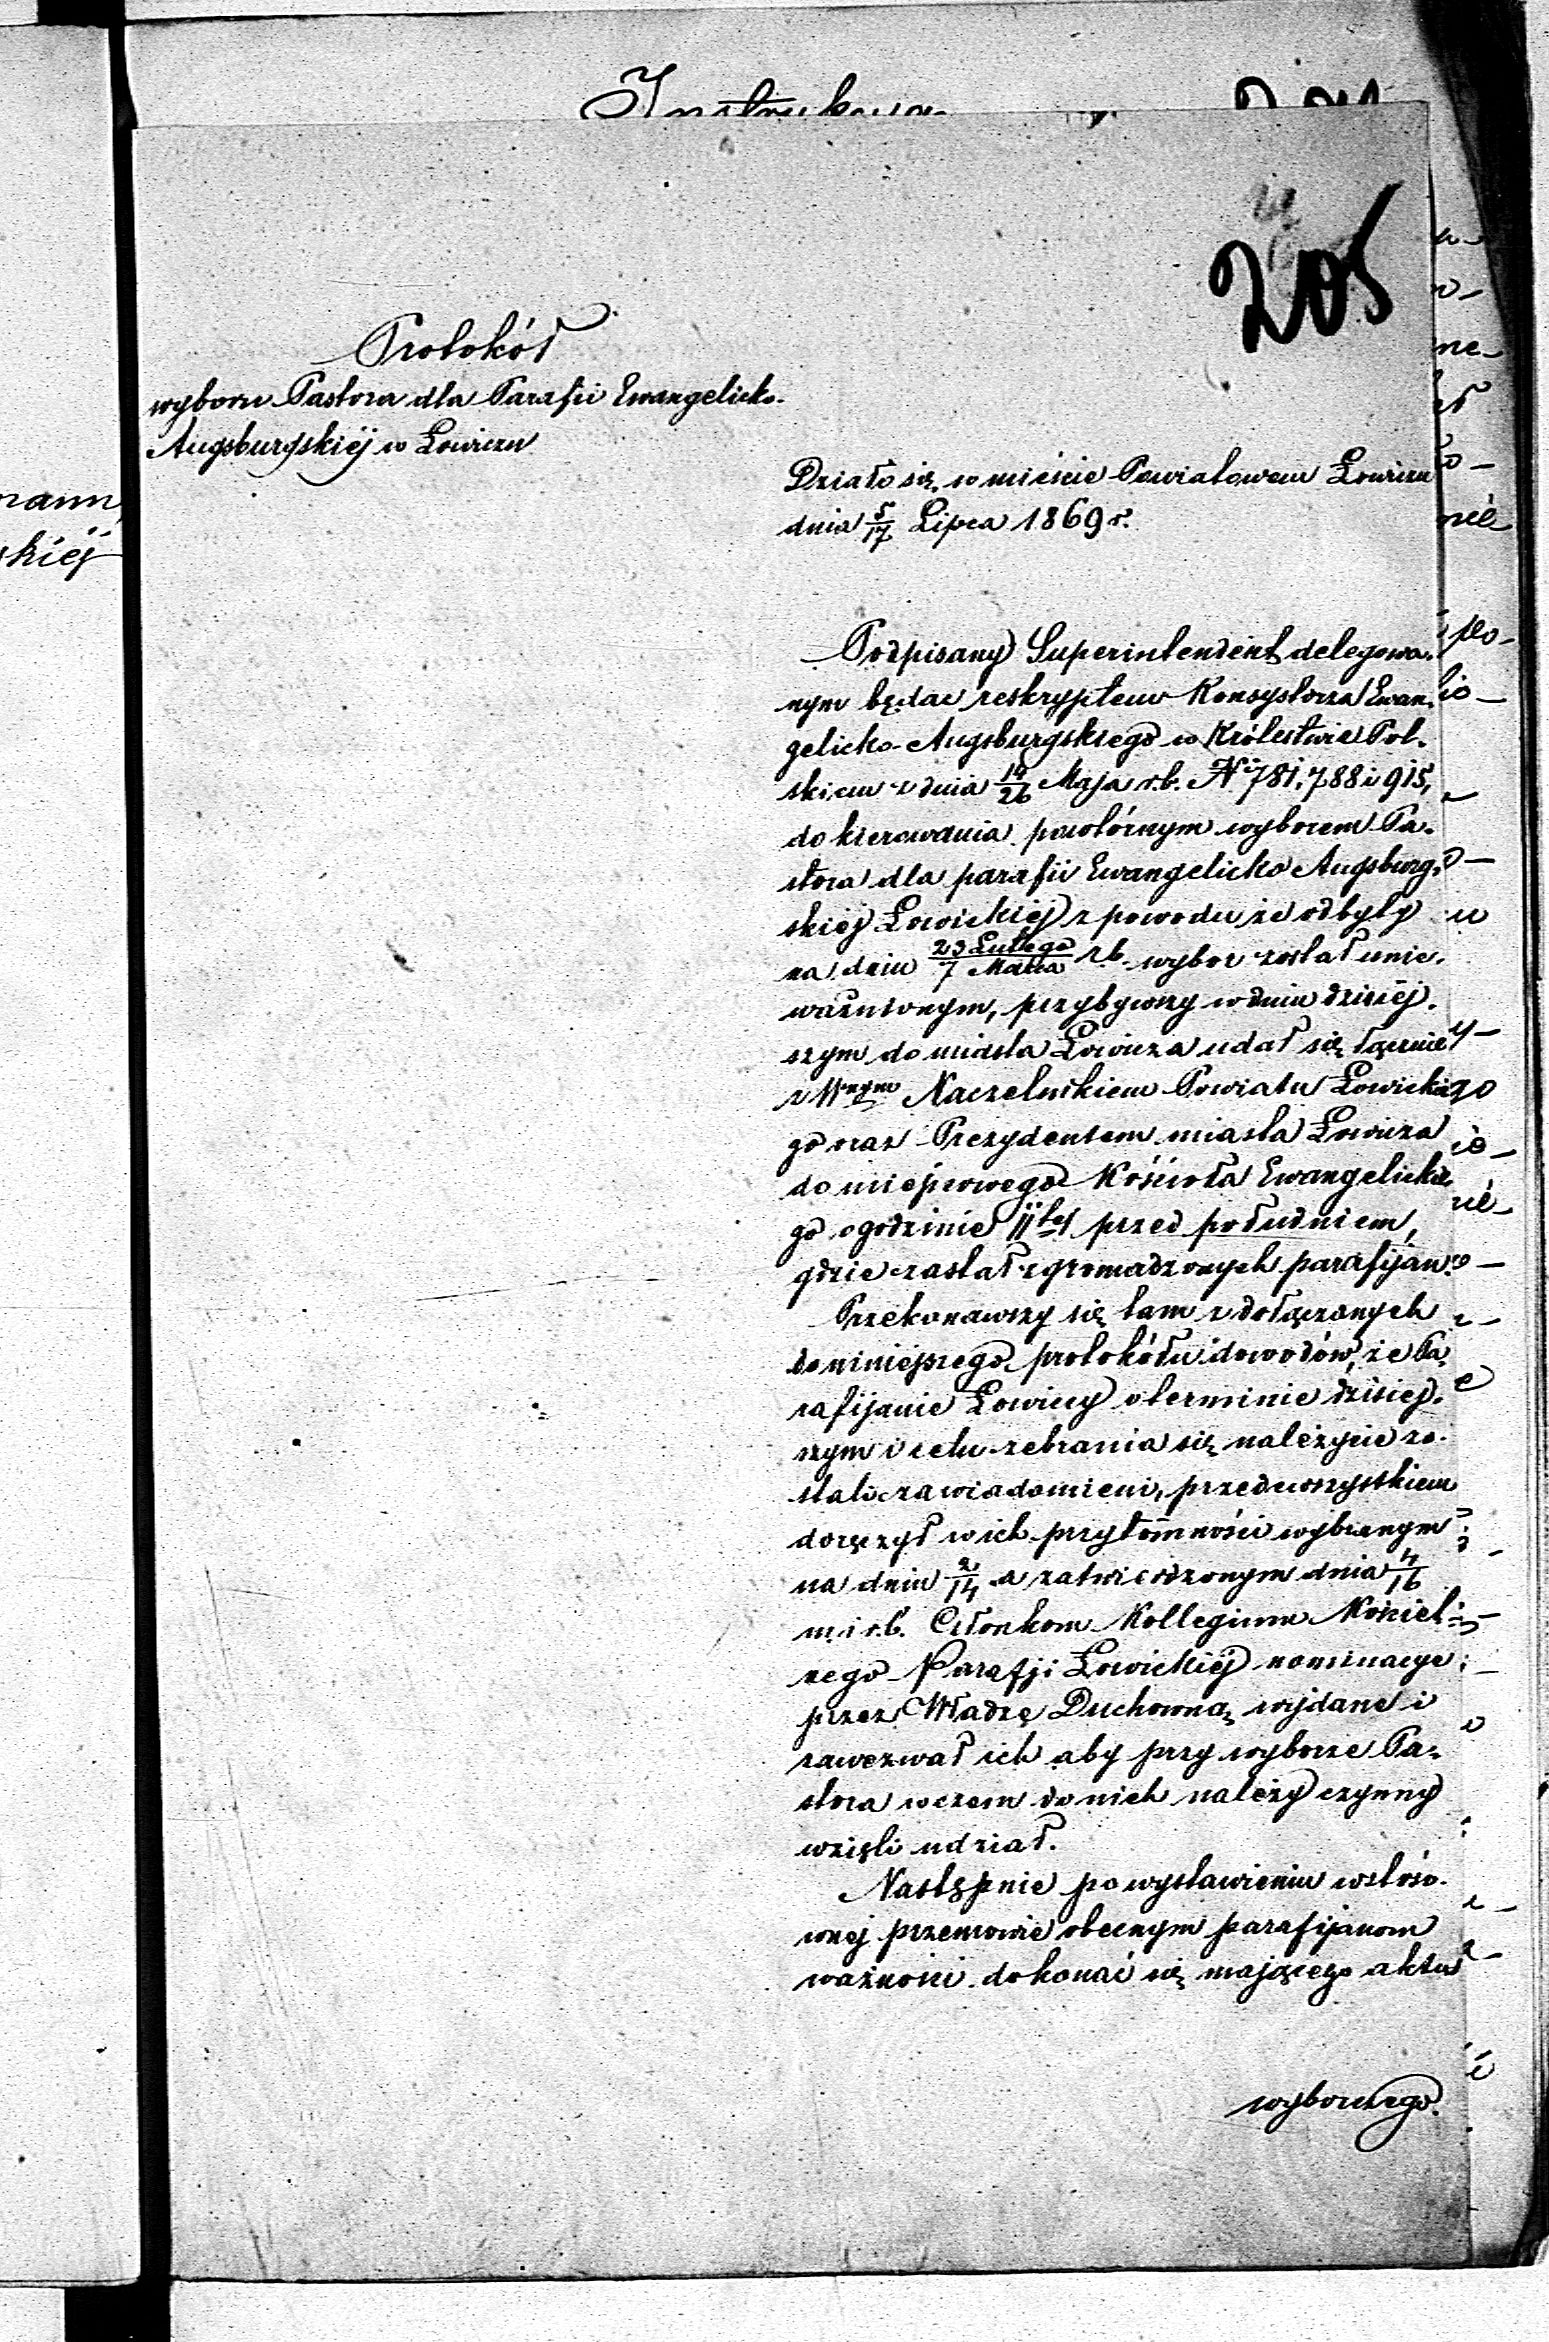 205
Protokół
wyboru Pastora dla Parafii Ewangelicko-
Augsburgskiéj w Łowiczu
Działo się w mieście Powiatowem Łowiczu
dnia 5/17 Lipca 1869 r.
Podpisany Superintendent delegowa-
nym będąc reskryptem Konsystorza Ewan-
gelicko-Augsburgskiego w Królestwie Pol-
skiem z dnia 14/26 Maja r.b. N 781, 788 i 915,
do kierowania powtórnym wyborem Pa-
stora dla parafii Ewangelicko Augsburg-
skiéj Łowickiéj z powodu że odbyty
na dniu 23 Lutego/7 Marca r.b. wybor został unie-
ważnionym, przybywszy w dniu dzisiéj-
szym do miasta Łowicza udał się łącznie
z Wnym Naczelnikiem Powiatu Łowickie
go oraz Prezydentem miasta Łowicza
do miejscowego Kościoła Ewangelickie
go o godzinie 11tej przed południem,
gdzie zastał zgromadzonych parafijan.
Przekonawszy się tam z dołączonych
do niniejszego protokółu dowodów, że Pa-
rafijanie Łowiccy o terminie dzisiej-
szym i celu zebrania się należycie zo-
stali zawiadomieni, przedewszystkiem
doręczył w ich przytomności wybranym
na dniu 2/14 a zatwierdzonym dnia 4/16
m. i r.b. Członkom Kollegium Kościel-
nego Parafji Łowickiéj nominacye
przez Władzę Duchowną wydane i
zawezwał ich aby przy wyborze Pa-
stora w czem do nich należy czynny
wzięli udział.
Następnie po wystawieniu w stóso-
wnej przemowie obecnym parafijanom
ważności dokonać się mającego aktu
wyborczego.